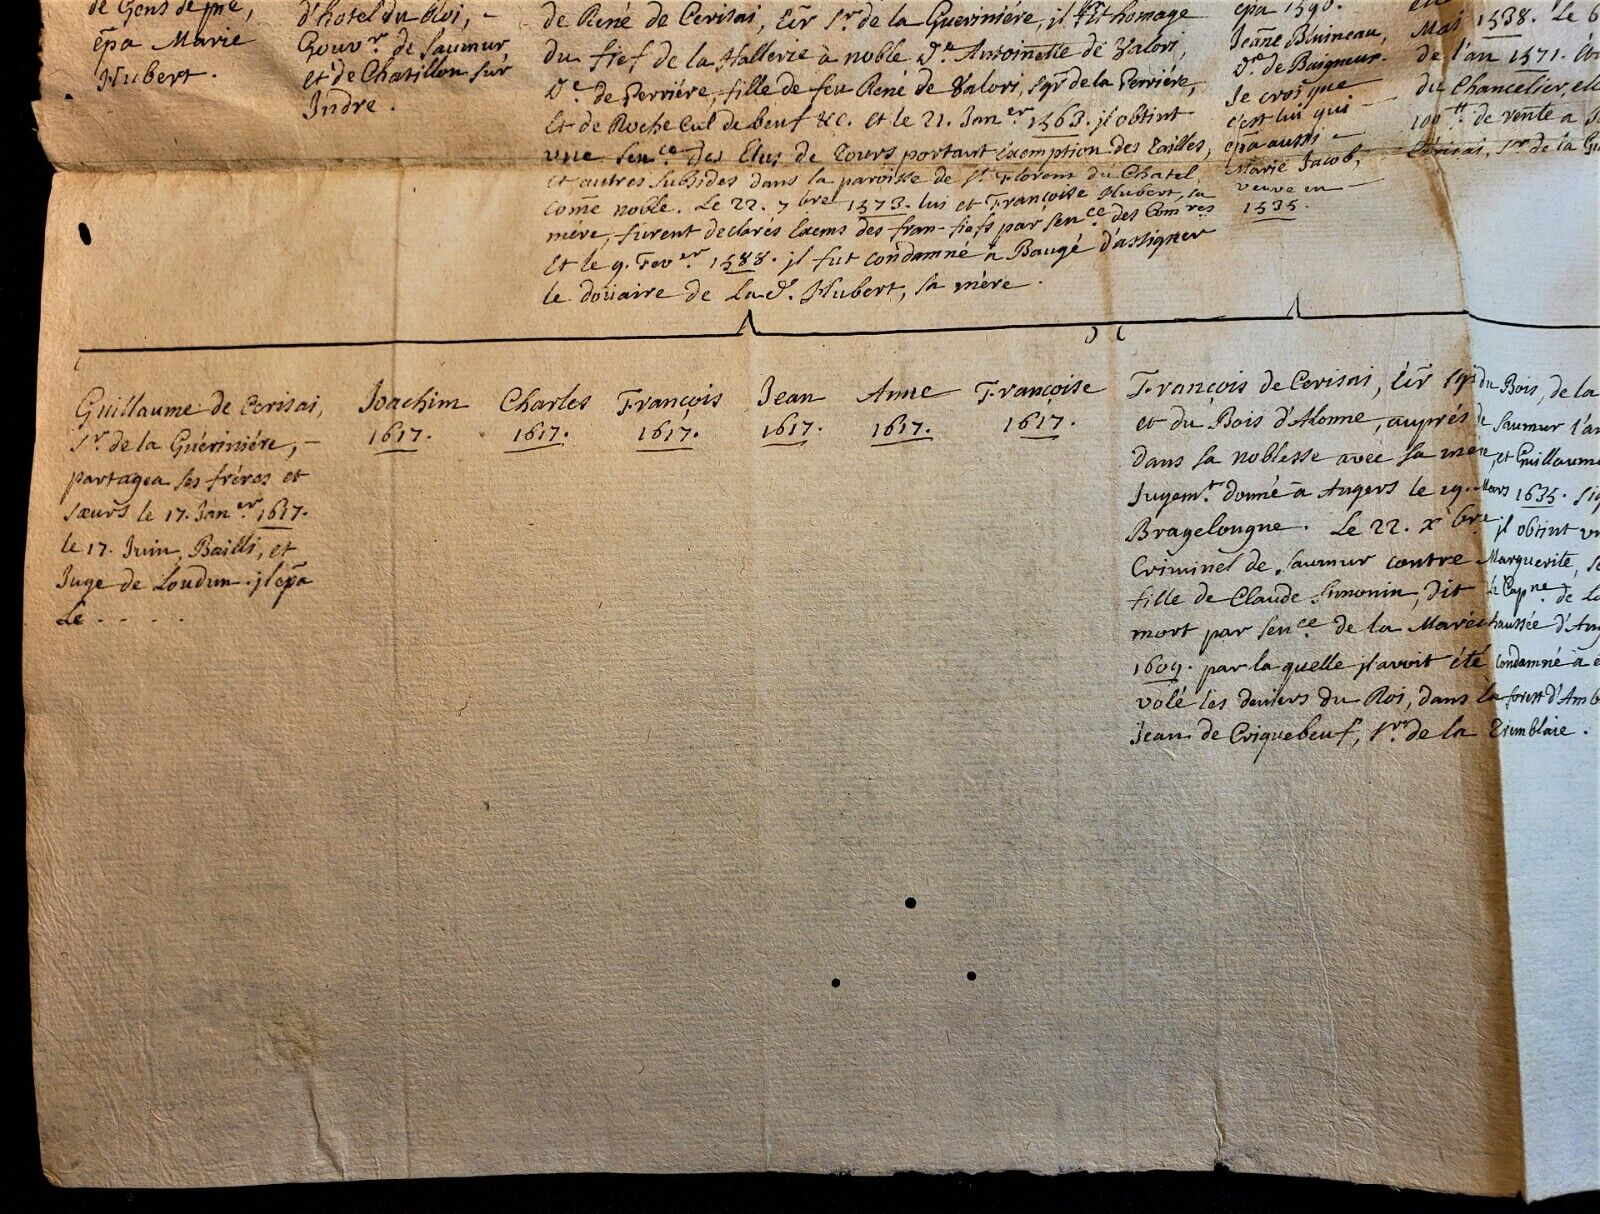 de Gens de pié,
épa Marie
Hubert.
d'hotel du Roi, –
Gouvr. de Saumur
et de Chatillon sur
Indre.
de René de Cerisai, Eür Sr. de la Gueriniére, il fit homage
du fief de la Hallerze à noble De. Antoinette de Valori,
De. de Perriére, fille de feu René de Valori, sgr de la Perriére,
et de Roche Cul de beuf &c. et le 21. Janer. 1563. il obtint
une Sence. des Elus de Tours portant exemption des Tailles,
et autres subsides dans la paroisse de St. Florent du Chatel
come noble. Le 22. 7bre 1573. lui et Françoise Hubert, sa
mére, furent declarés exems des fran-fiefs par Sence des Comres
et le 9. Fever. 1588. il fut condamné à Baugé d'assigner
le doüaire de La d. Hubert, sa mére.
épa 1590.
Jeanne Bruneau,
De. de
Je crois que
c'est lui qui –
épa aussi –
Marie Jacob,
veuve en –
1535.
Mai 1538. Le 6
de l'an 1571.
du Chancelier, ell
100 tt. de rente a
Cerisai, Sr. de la Gu
Guillaume de Cerisai,
Sr. de la Guériniére, –
partagea ses fréres et
sœurs le 17. Janer. 1617.
le 17. Juin, Bailli, et
Juge de Loudun. il épa
Le . . . . .
Joachim
1617.
Charles
1617.
François
1617.
Jean
1617.
Anne
1617.
Françoise
1617.
François de Cerisai, Eür Sgr du Bois, de la
et du Bois d'Alonne, auprés de Saumur l'an
dans sa noblesse avec sa mére, et Guillaume
Jugemt. donné à Angers le 29. Mars 1635. sig
Bragelongne. Le 22. Xbre. il obtint un
Criminel de Saumur contre Marguerite, se
fille de Claude Simonin, dit le Capne. de La
mort par Sence. de la Maréchaussée d'Ang
1609. par la quelle il avoit été condamné à é
volé les deniers du Roi, dans la forest d'Amb
Jean de Criquebeuf, Sr. de la Tremblaie.